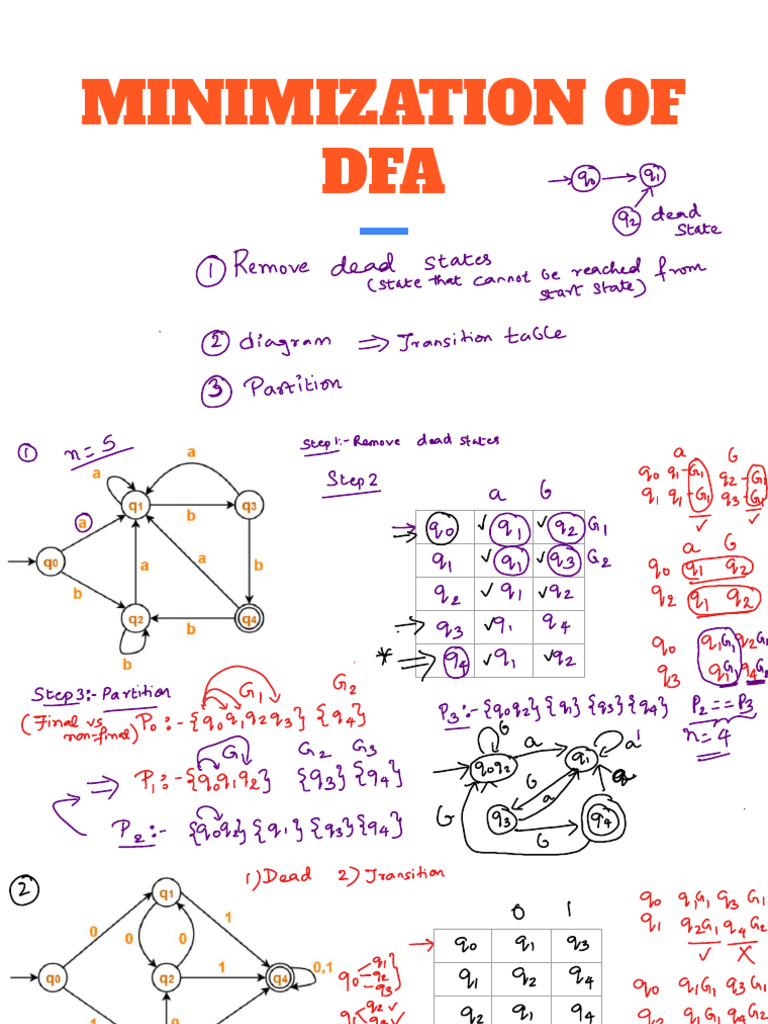 MINIMIZATION OF
DFA
q0 q1
q2 dead
state
① Remove dead states
(state that cannot be reached from
start state)
② diagram ⇒ Transition table
③ Partition
① n=5
Step1:- Remove dead states
Step2
a b
q0 q1 q2 G1
q1 q1 q3 G2
q2 q1 q2
q3 q1 q4
* q4 q1 q2
a
a
q1
b
q3
a
q0
a
a
b
b
q2
b
q4
b
a b
q0 q1-G1 q2-G1
q1 q1-G1 q3-G1
a b
q0 q1 q2
q2 q1 q2
q0 q1G1 q2G1
q3 q1G1 q4G2
Step3:- Partition
(Final vs
non-final)
G1 G2
P0:-{q0q1q2q3} {q4}
G1 G2 G3
⇒ P1:-{q0q1q2} {q3} {q4}
P2:- {q0q2} {q1} {q3} {q4}
P3:-{q0q2} {q1} {q3} {q4}
P2==P3
n=4
b
q0q2 a q1 a
b a
b q3 b q4
②
1) Dead 2) Transition
q1
0 1
0 0
q0 q2 1 q4 0,1
1 0
0 1
q0 q1 q3
q1 q2 q4
q2 q1 q4
q0 q1
q2
q3
q1 q2
q0 q1G1 q3G1
q1 q2G1 q4G2
✓ X
q0 q1G1 q3G1
q2 q1G1 q4G2